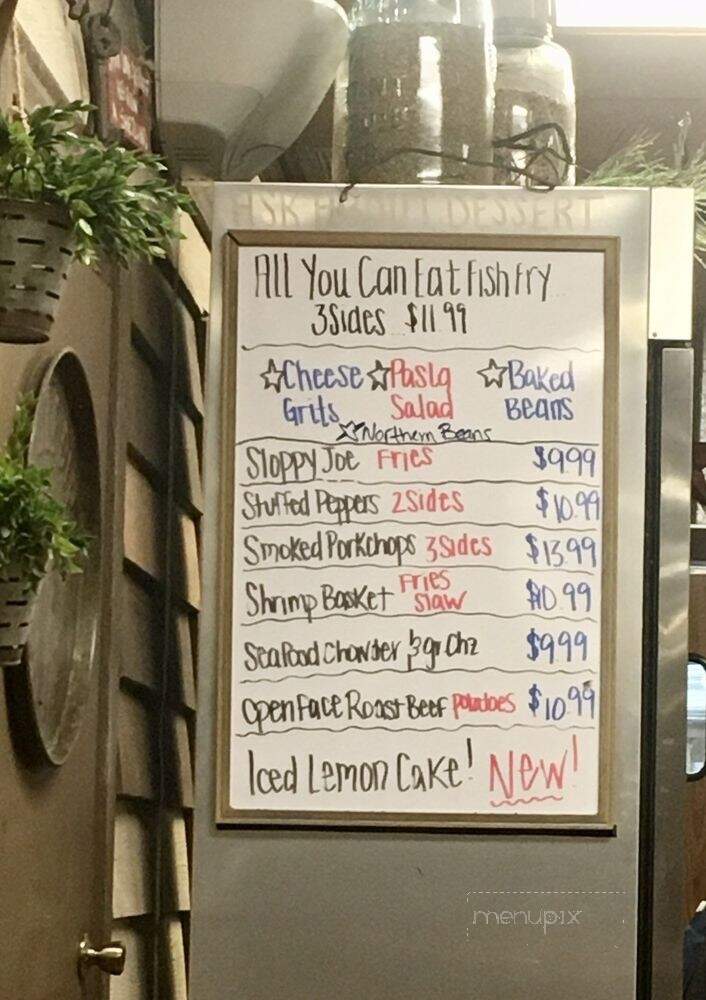 ASK ABOUT DESSERT
All You Can Eat Fish Fry
3 Sides $11.99
Cheese Grits
Pasta Salad
Baked Beans
Northern Beans
Sloppy Joe Fries $9.99
Stuffed Peppers 2 Sides $10.99
Smoked Porkchops 3 Sides $13.99
Shrimp Basket Fries Slaw $10.99
Seafood Chowder gr Chz $9.99
Open Face Roast Beef potatoes $10.99
Iced Lemon Cake! New!
menupix